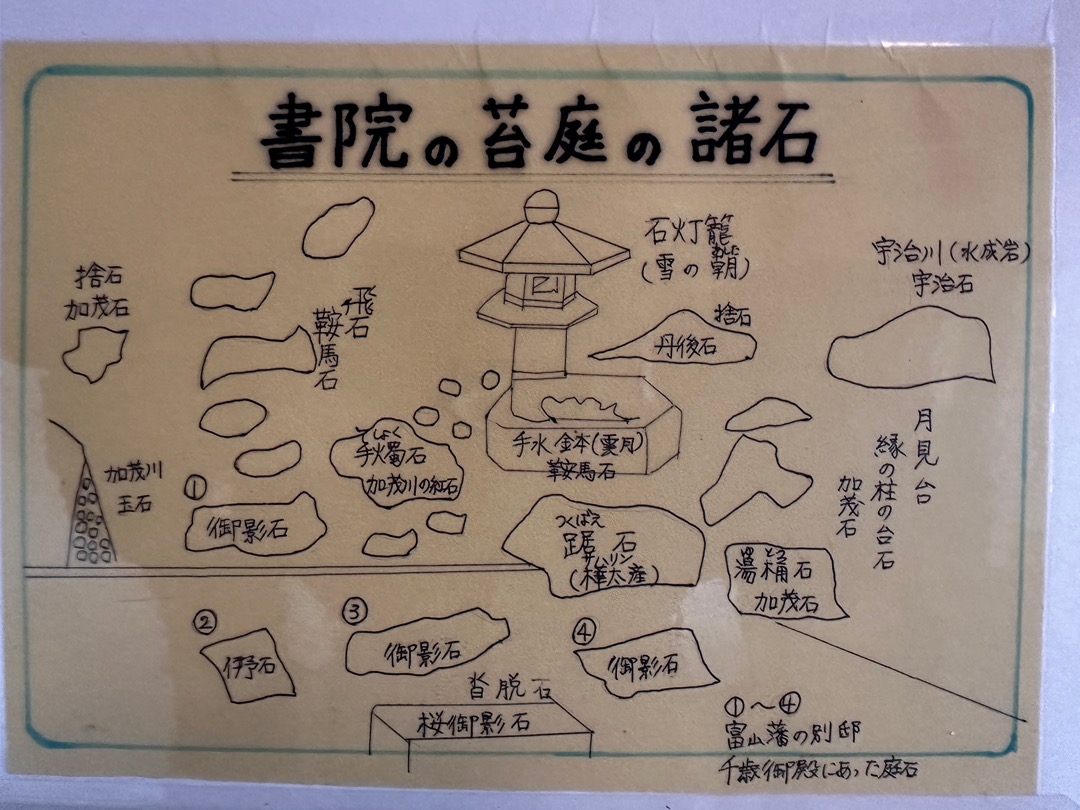 書院の苔庭の諸石
捨石
加茂石
飛石
鞍馬石
石灯籠
(雪の朝)
捨石
丹後石
宇治川(水成岩)
宇治石
加茂川
玉石
①
御影石
てしょく
手燭石
加茂川の紅石
手水鉢(雲月)
鞍馬石
つくばえ
踞石
サムリン
(樺太産)
湯桶石
加茂石
月見台
縁の柱の台石
加茂石
②
伊予石
③
御影石
④
御影石
沓脱石
桜御影石
①～④
富山藩の別邸
千歳御殿にあった庭石